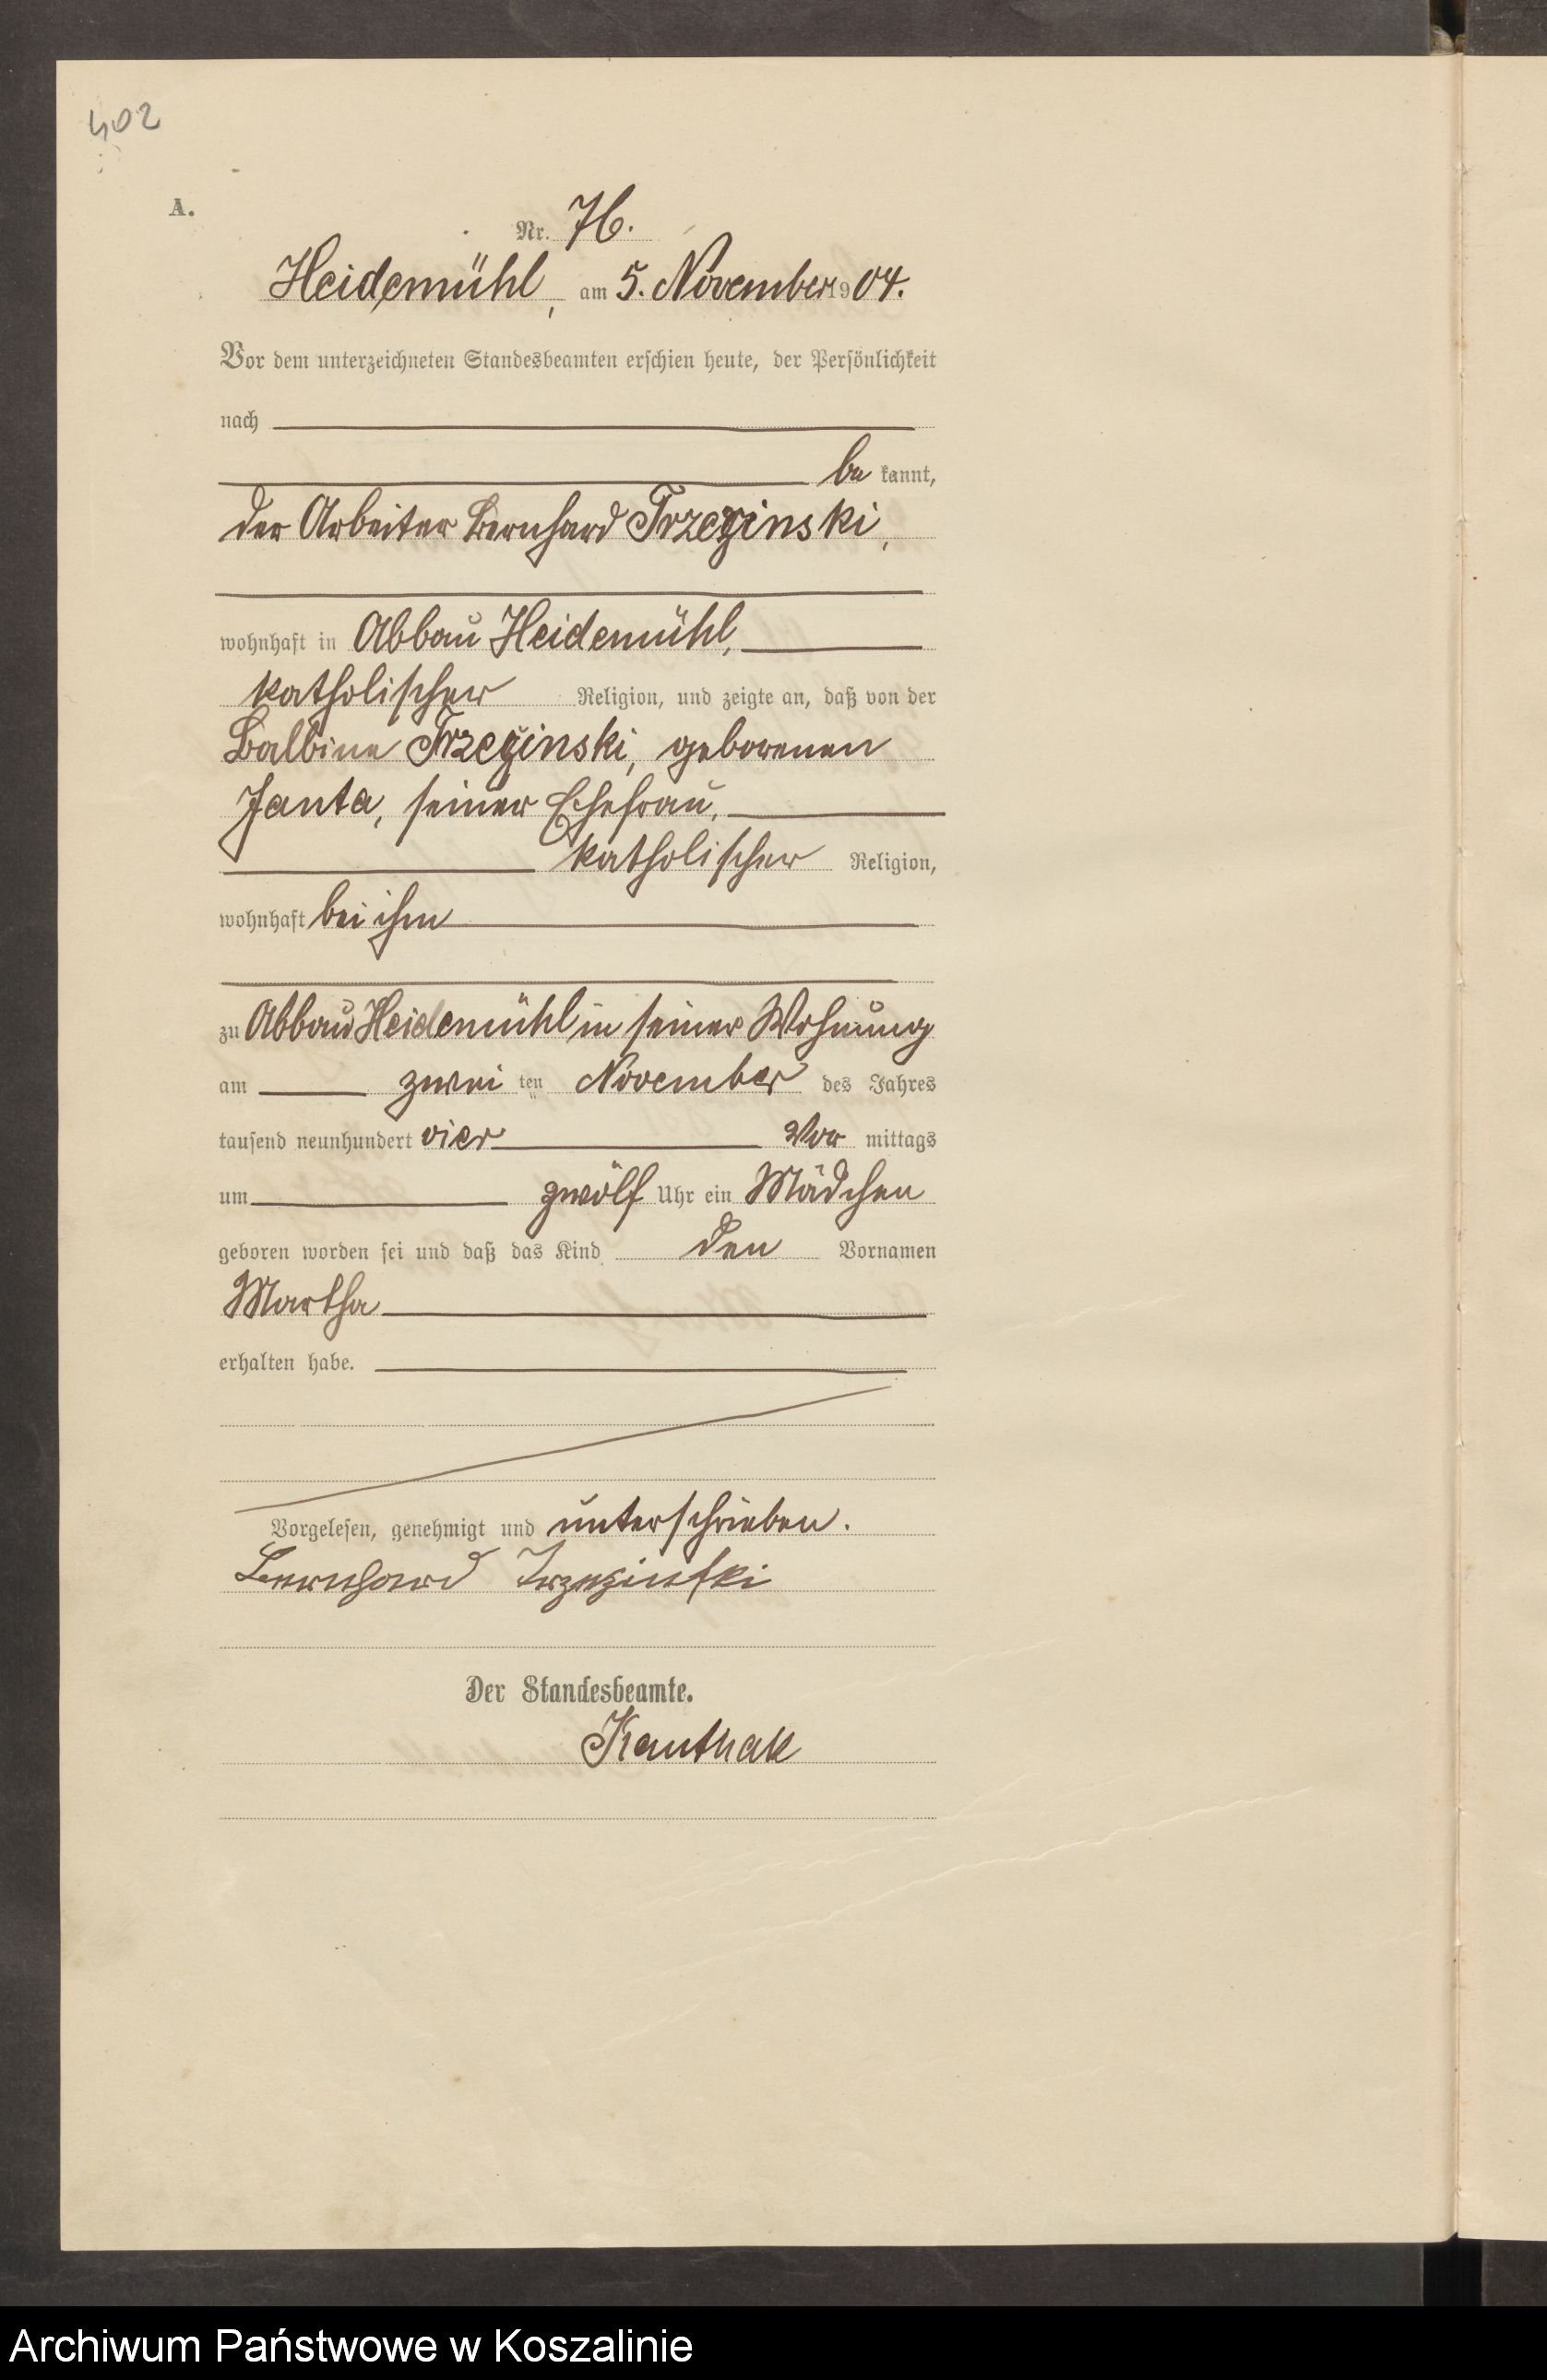 402
A.
Nr. 76.
Heidemühl, am 5. November 1904.
Vor dem unterzeichneten Standesbeamten erschien heute, der Persönlichkeit
nach
be kannt,
der Arbeiter Bernhard Trzezinski,
wohnhaft in Abbau Heidemühl,
katholischer Religion, und zeigte an, daß von der
Balbine Trzezinski, geborenen
Janta, seiner Ehefrau,
katholischer Religion,
wohnhaft bei ihm
zu Abbau Heidemühl in seiner Wohnung
am zwei ten November des Jahres
tausend neunhundert vier Vor mittags
um zwölf Uhr ein Mädchen
geboren worden sei und daß das Kind den Vornamen
Martha
erhalten habe.
Vorgelesen, genehmigt und unterschrieben.
Bernhard Trzezinski
Der Standesbeamte.
Kanthak
Archiwum Państwowe w Koszalinie